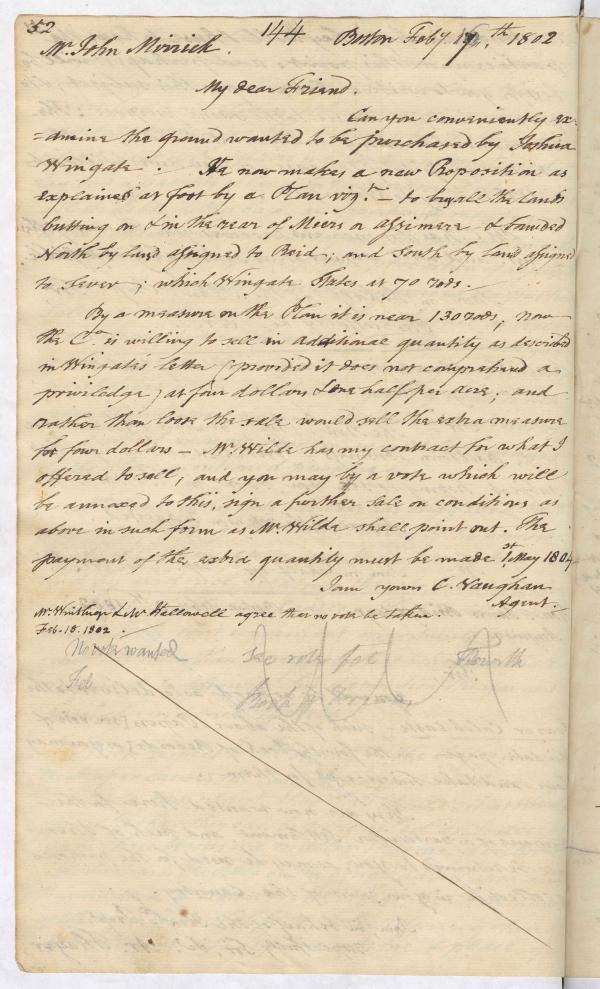 52
144
Mr. John Mirrick. Boston Feby. 17.th 1802
My dear Friend.
Can you conveniently ex-
=amine the ground wanted to be purchased by Joshua
Wingate. He now makes a new Proposition as
explained at foot by a Plan vizt. — to buy all the lands
butting on & in the rear of Miers or assimere & bounded
North by land assigned to Reid; and South by land assigned
to Sever; which Wingate States at 70 rods.
By a measure on the Plan it is near 130 rods; now
the Co. is willing to sell in additional quantity as described
in Wingate's letter (provided it does not comprehend a
priviledge) at four dollars & one half per acre; and
rather than loose the sale would sell the extra measure
for four dollars — Mr. Wilde has my contract for what I
offered to sell, and you may by a vote which will
be annexed to this, sign a further Sale on conditions as
above in such form as Mr. Wilde shall point out. The
payment of the extra quantity must be made 1st. May 1804
I am yours C. Vaughan
Agent.
Mr. Winthrop & Mr. Hallowell agree that no vote be taken.
Feb. 18. 1802.
No vote wanted
See vote fol
Feb